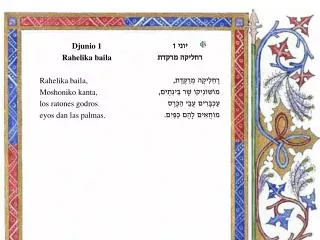 Djunio 1
Rahelika baila
Rahelika baila,
Moshoniko kanta,
los ratones godros
eyos dan las palmas.
יוני 1
רחליקה מרקדת
רָחֵלִיקָה מְרַקֶּדֶת,
מוֹשׁוֹנִיקוֹ שָׁר בֵּינְתַיִם,
עַכְבָּרִים עֲבֵי הַכֶּרֶס
מוֹחֲאִים לָהֶם כַּפַּיִם.